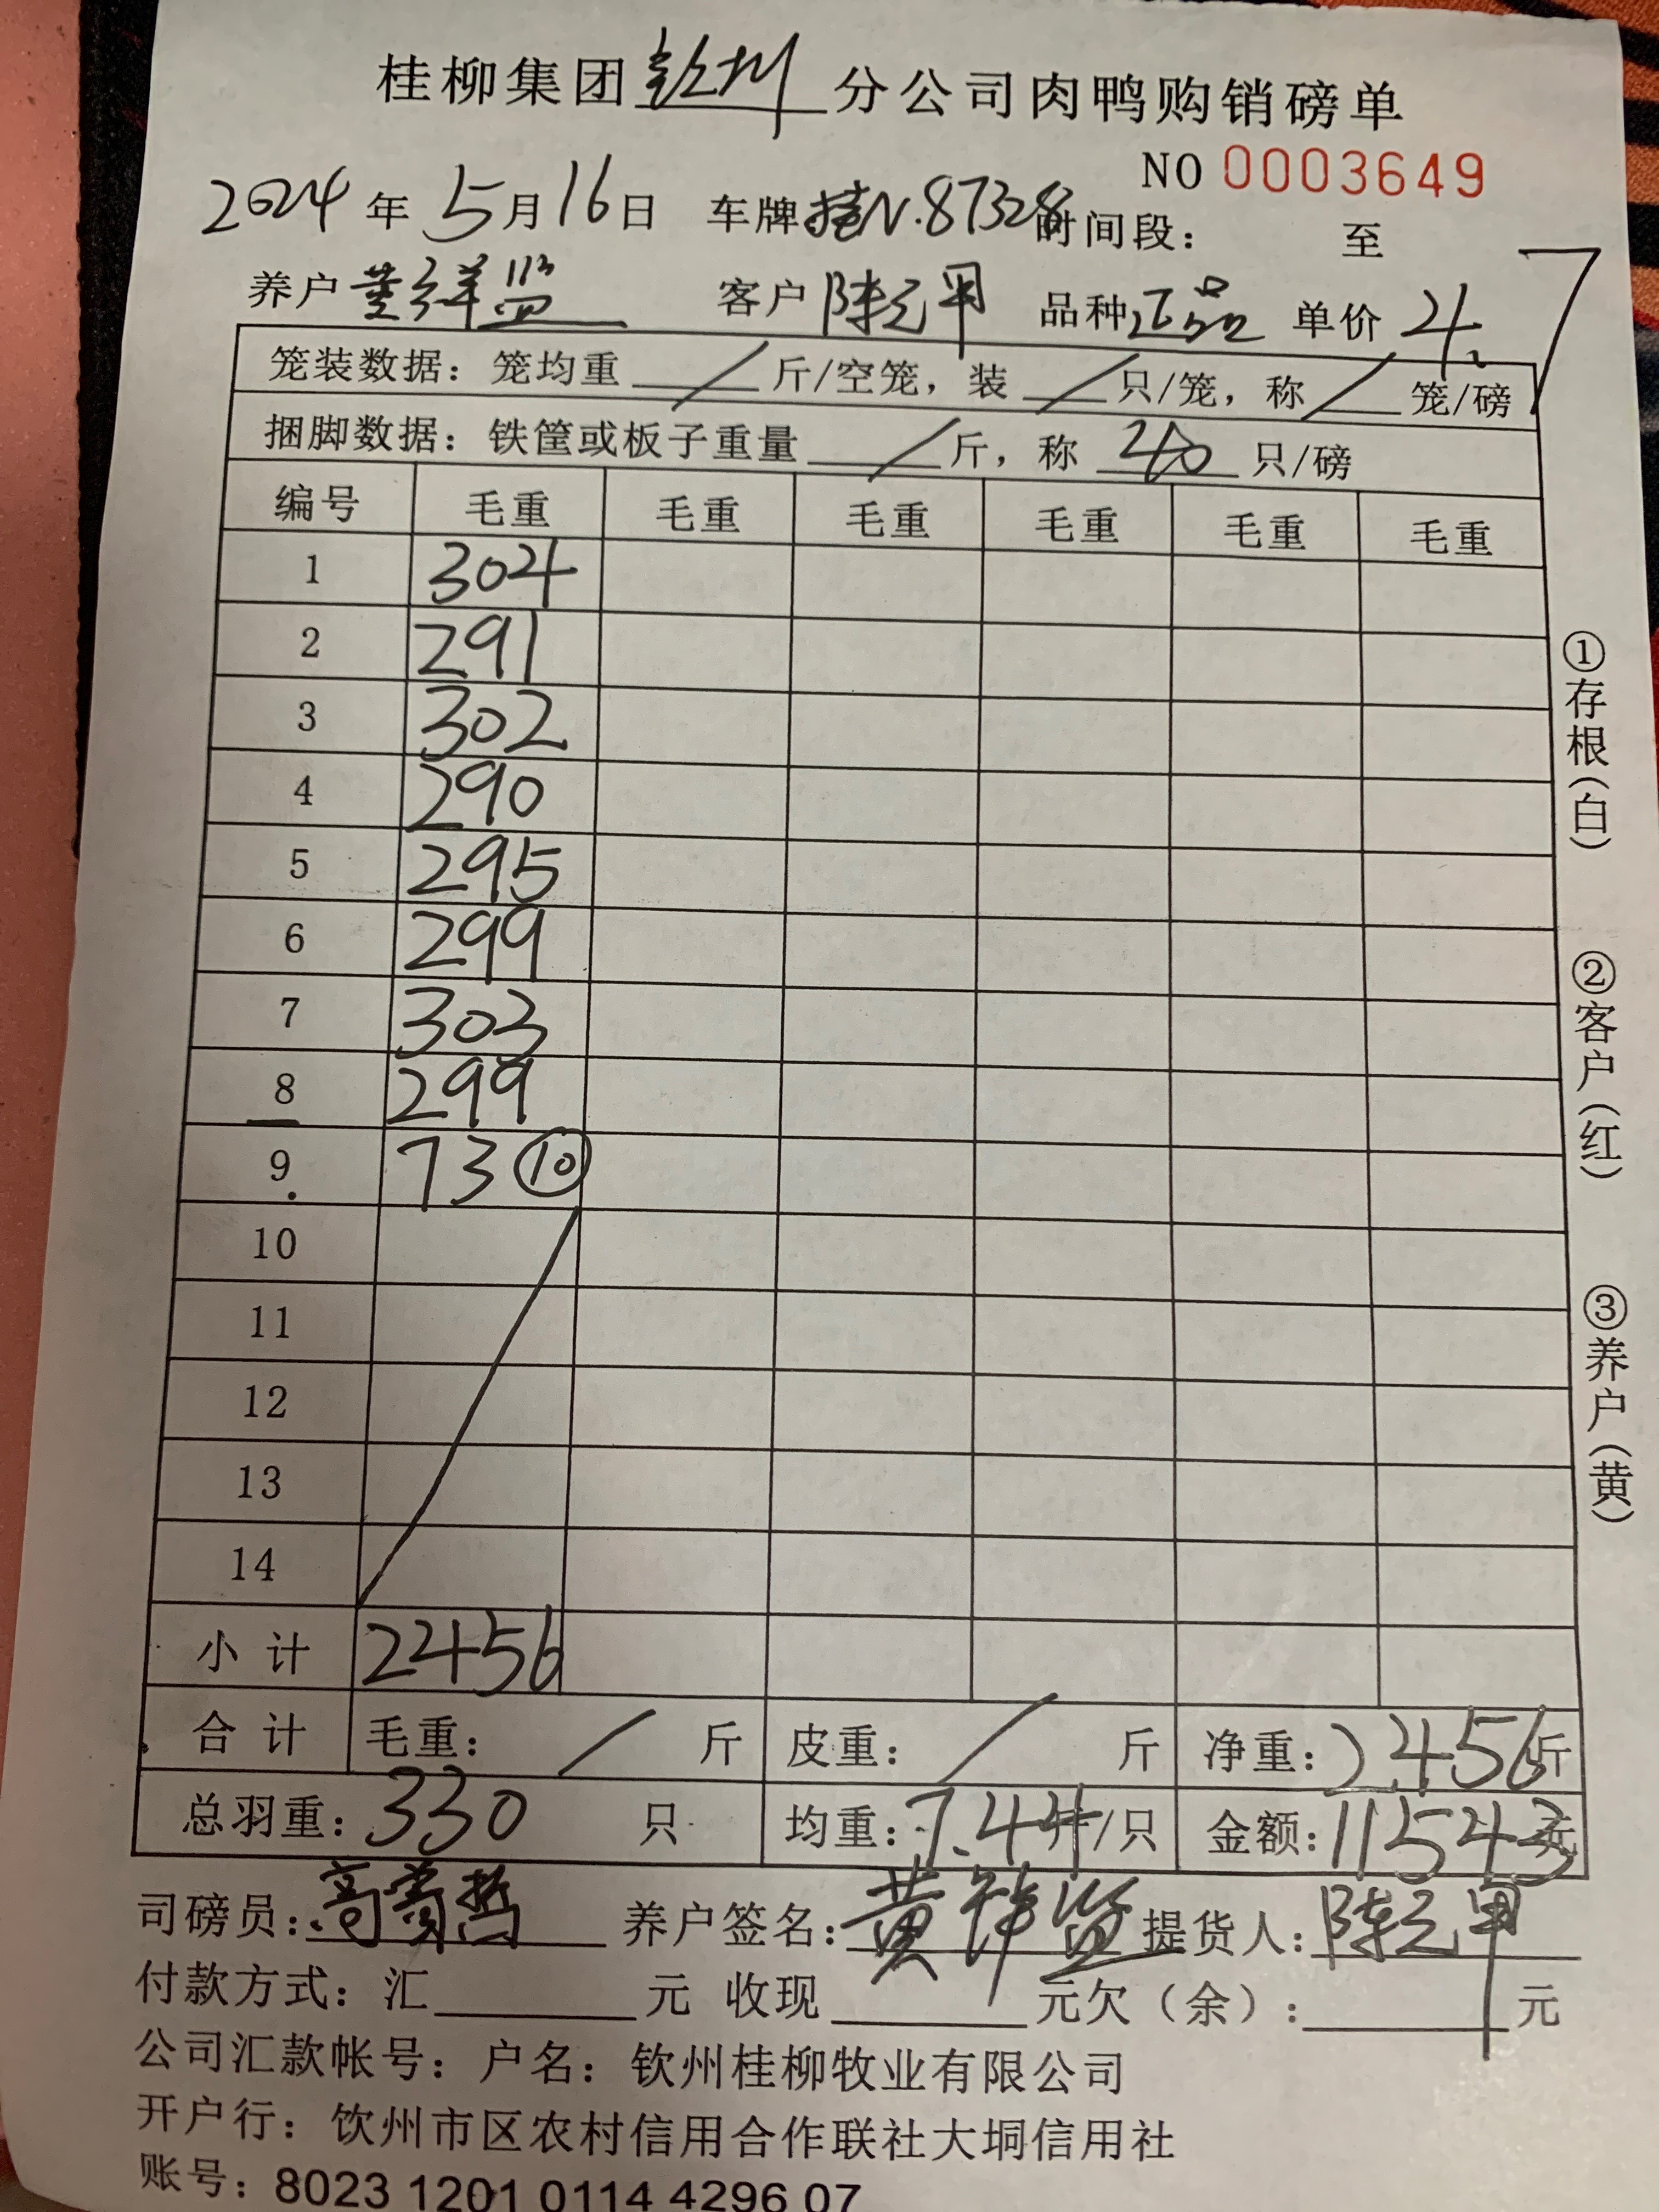 桂柳集团钦州分公司肉鸭购销磅单
NO 0003649
2024年5月16日 车牌桂N.87328时间段： 至
养户黄锌监 客户陈元甲 品种正品 单价4.7
笼装数据：笼均重/斤/空笼，装/只/笼，称/笼/磅
捆脚数据：铁筐或板子重量/斤，称40只/磅
编号 毛重 毛重 毛重 毛重 毛重 毛重
1 304
2 291
3 302
4 290
5 295
6 299
7 303
8 299
9 73 ⑩
10
11
12
13
14
小计 2456
合计 毛重：/斤 皮重：/斤 净重：2456斤
总羽重：330只 均重：7.44斤/只 金额：11543元
司磅员： 养户签名：黄锌监 提货人：陈元甲
付款方式：汇 元 收现 元欠（余）： 元
公司汇款帐号：户名：钦州桂柳牧业有限公司
开户行：钦州市区农村信用合作联社大垌信用社
账号：8023 1201 0114 4296 07
①存根（白）
②客户（红）
③养户（黄）